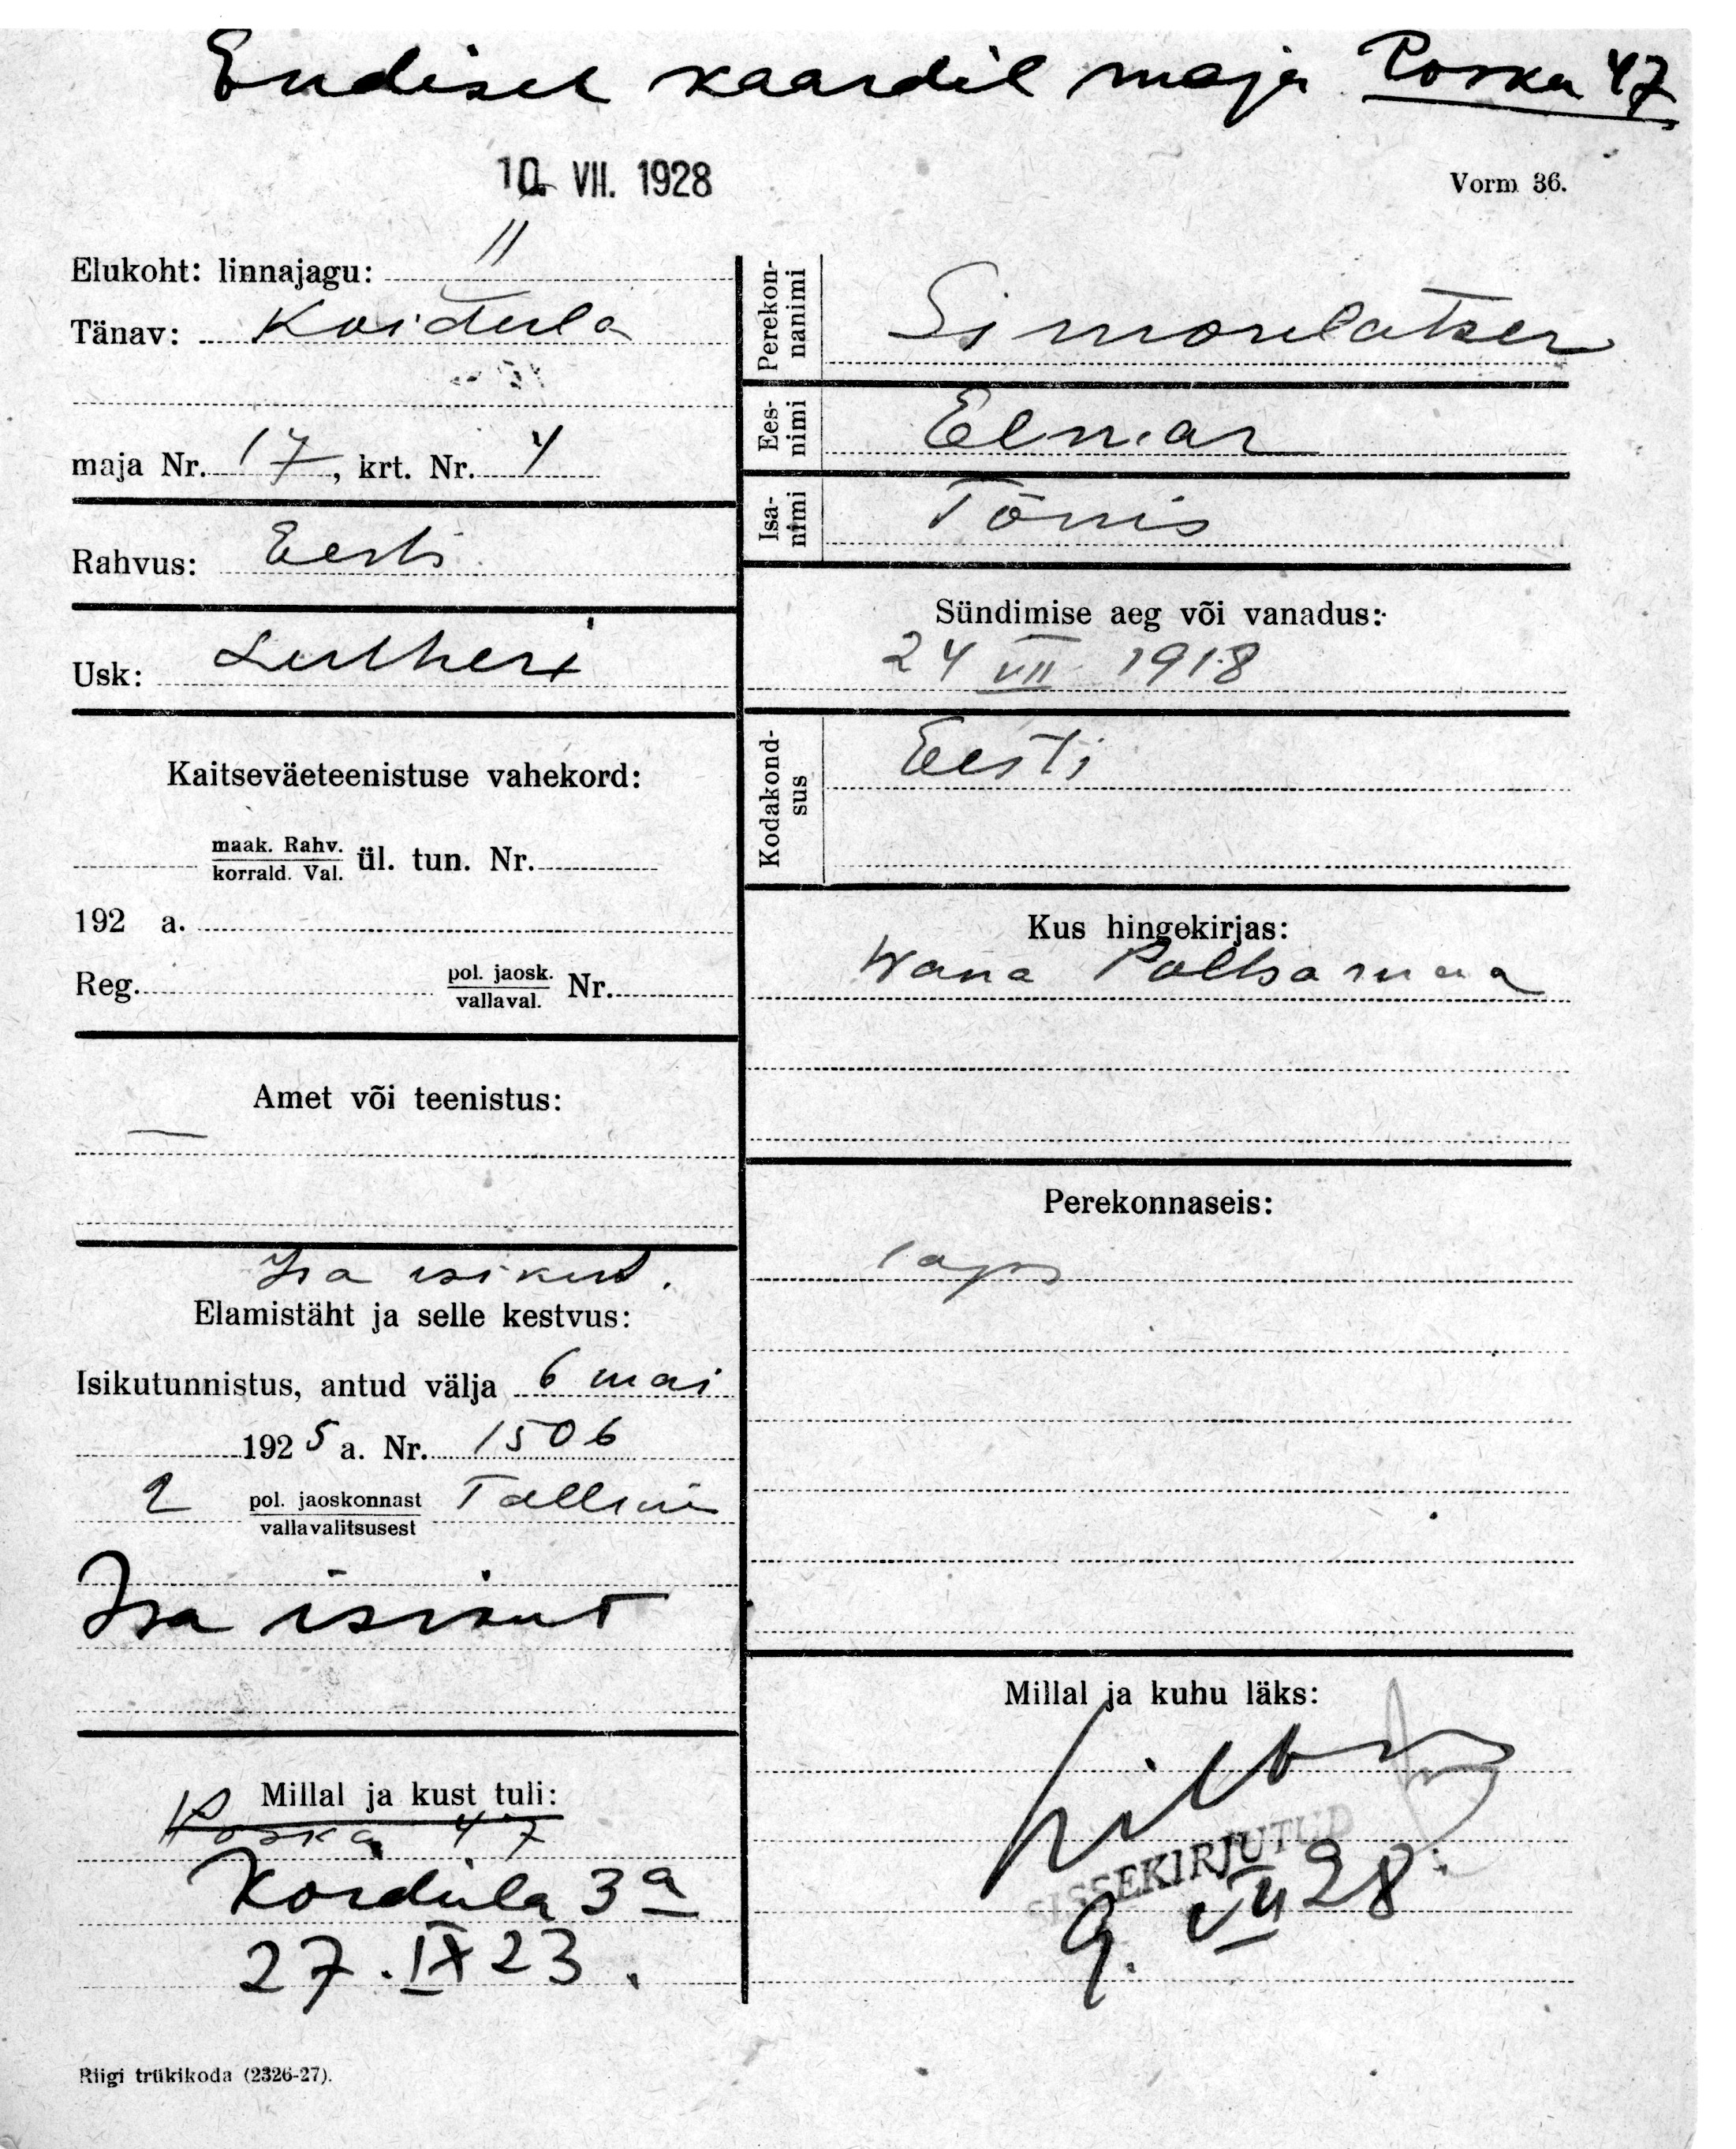 Endisel kaardil maja Poska 47
10. VII. 1928
Vorm 36.
Elukoht: linnajagu: II
Tänav: Koidula
maja Nr. 17, krt. Nr. 4
Rahvus: Eesti
Usk: Lutheri
Kaitseväeteenistuse vahekord:
maak. Rahv.
korrald. Val. ül. tun. Nr.
192 a.
Reg. pol. jaosk.
vallaval. Nr.
Amet või teenistus:
—
Isa isikut.
Elamistäht ja selle kestvus:
Isikutunnistus, antud välja 6 mai
1925 a. Nr. 1506
2 pol. jaoskonnast Tallinn
vallavalitsusest
Isa isikut
Millal ja kust tuli:
Poska 47
Koidula 3a
27. IX 23.
Perekon-
nanimi Simonlatser
Ees-
nimi Elmar
Isa-
nimi Tõnis
Sündimise aeg või vanadus:
24 VII 1918
Kodakond-
sus Eesti
Kus hingekirjas:
Wana Põltsamaa
Perekonnaseis:
laps
Millal ja kuhu läks:
SISSEKIRJUTUD
9. VII 28.
Riigi trükikoda (2326-27).